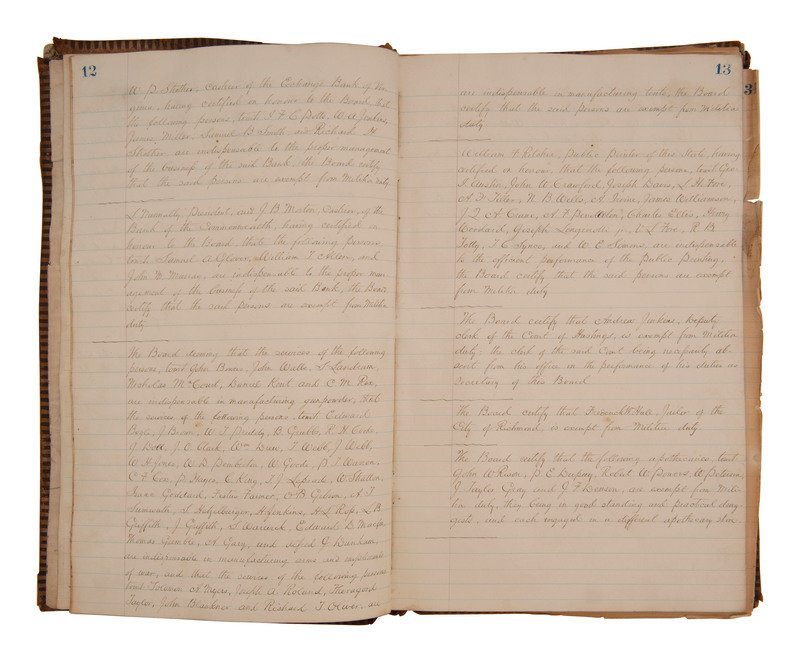 12
W P Strother, cashier of the Exchange Bank of Vir
ginia, having certified on honour to the Board, that
the following persons, towit J. F. C. Potts, W A Jenkins,
James Miller, Samuel B Smith and Richard H
Strother are indispensable to the proper management
of the business of the said Bank, the Board certify
that the said persons are exempt from Militia duty
President, and J B Morton, Cashier, of the
Bank of the Commonwealth, having certified on
honour to the Board that the following persons
towit Samuel A Glover, William F and
John M are indispensable to the proper man-
agement of the business of the said Bank, the Board
certify that the said persons are exempt from Militia
duty
The Board deeming that the services of the following
persons, towit John Bowers, John Wells, S Landrum,
Nicholas McCourt, Daniel Kent and C M Rex,
are indispensable in manufacturing gunpowder, that
the services of the following persons, towit Edward
J Brown, W. F. Priddy, B Grubbs, R. H. Code,
J Doll, J. C. Clark, Wm Dunn, T Webb, J. Webb,
W H Jones, W D Pemberton, W Goode, B. T. Warren,
C F Cox, P Hayes, C King, T. J. W. Shelton,
Isaac Goddard, Foster Farmer, O B Gibson, A. T
S Hefelburger, H Jenkins, H L Rose, L B
Griffith, J Griffith, S Warwick, Edward D
Thomas Gamble, A Gary, and G Duncan,
are indispensable in manufacturing arms and implements
of war, and that the services of the following persons
towit Solomon A Myers, Joseph A Roland,
Taylor, John Blackner and Richard T Oliver, are
13
are indispensable in manufacturing tents, the Board
certify that the said persons are exempt from Militia
duty
William F Ritchie, Public Printer of this State, having
certified on honour, that the following persons, towit Geo
Austin, John W Crawford, Joseph Davis, S. H. Fore,
A. F. W. B Wells, A Irvine, James Williamson,
J. Q. A Crane, A. F Pendleton, Charles Ellis, Henry
Goddard, Joseph jr, V L Fore, R. B
Totty, T C Tyree, and W. E Simons, are indispensable
to the efficient performance of the Public Printing,
the Board certify that the said persons are exempt
from Militia duty
The Board certify that Andrew Jenkins, Deputy
clerk of the Court of Hustings, is exempt from Militia
duty; the clerk of the said Court being necessarily ab-
sent from his office in the performance of his duties as
Secretary of this Board
The Board certify that Frederick Hale, Jailor of the
City of Richmond, is exempt from Militia duty.
The Board certify that the following apothecaries, towit
John W Rison, P. E Dupuy, Robert W Powers, W Peterson
J Taylor Gray and J F Denson, are exempt from Mili-
tia duty, they being in good standing and practical drug-
gists, and each engaged in a different apothecary store.
3